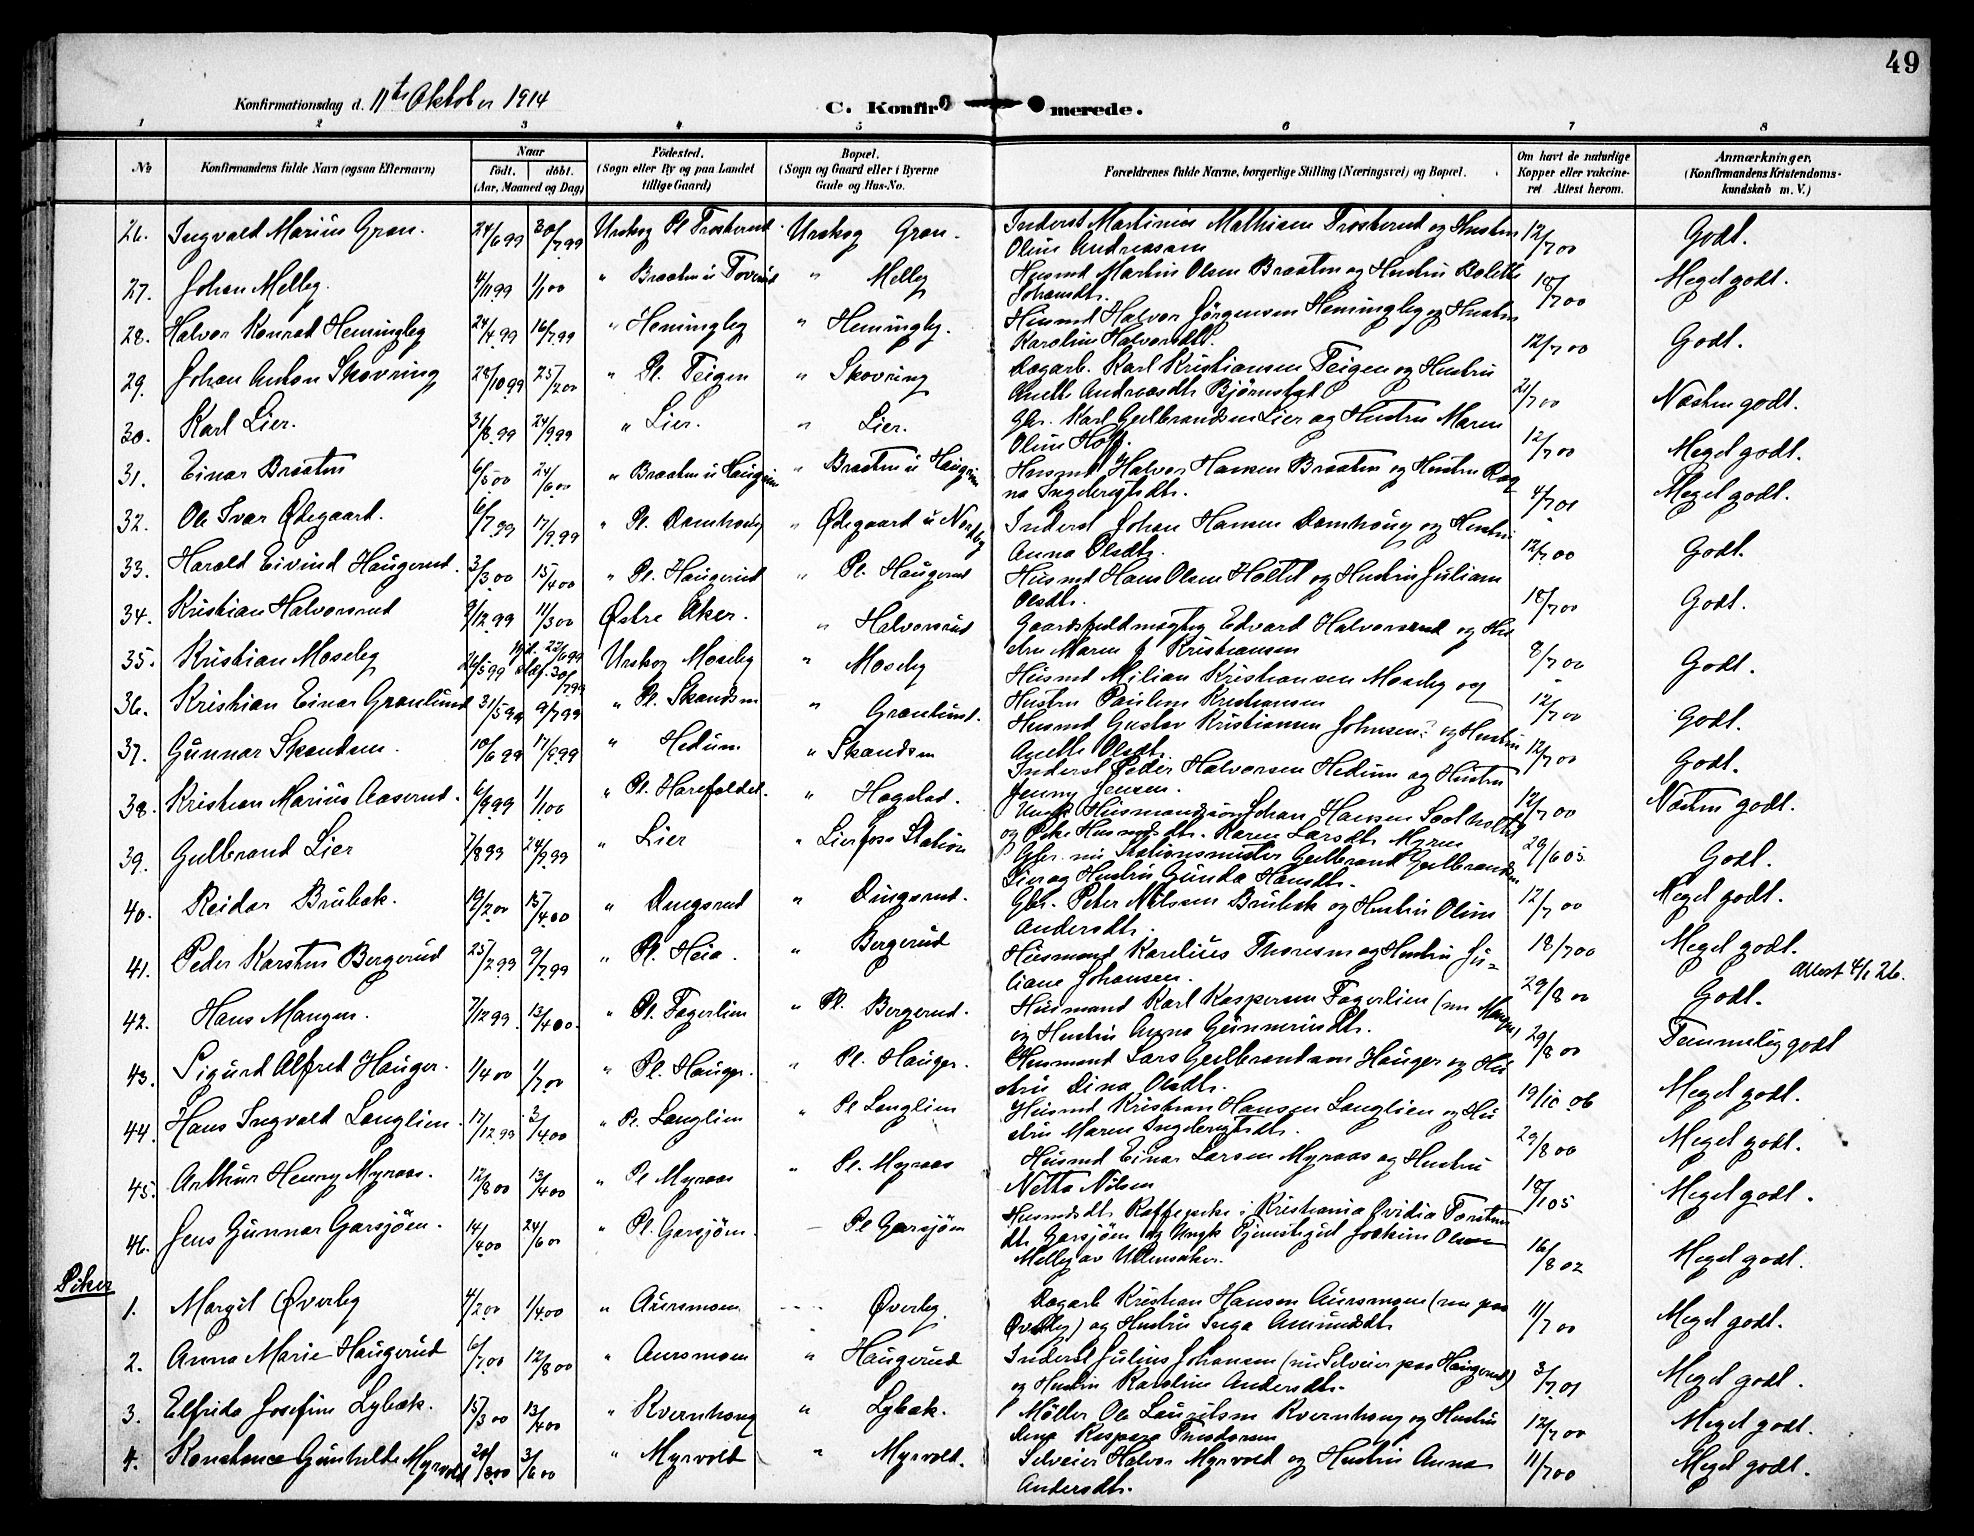 49
Konfirmationsdag d. 11te Oktober 1914
C. Konfirmerede.
1 2 3 4 5 6 7 8
No Konfirmandens fulde Navn (ogsaa Efternavn) Naar født. døbt. (Aar, Maaned og Dag) Fødested. (Sogn eller By og paa Landet tillige Gaard) Bopæl. (Sogn og Gaard eller i Byerne Gade og Hus-No. Forældrenes fulde Navne, borgerlige Stilling (Næringsvei) og Bopæl. Om havt de naturlige Kopper eller vakcineret Attest herom. Anmærkninger, (Konfirmandens Kristendomskundskab m. V.)
26. Ingvald Marius Gran. 24/6 99 30/7 99 Urskog Pl Trosterud Urskog Gran. Inderst Martinius Mathisen Trosterud og Hustru 12/7 00 Godt.
Oline Andreassen
27. Johan Melleby. 4/11 99 1/1 00 " Braaten u Toverud " Melleby Husmd Martin Olsen Braaten og Hustru Bolette 18/7 00 Meget godt.
Johansdt.
28. Halvor Konrad Hemingby 24/4 99 16/7 99 " Hemingby " Hemingby. Husmd Halvor Jørgensen Hemingby og Hustru 12/7 00 Godt.
Karoline Halvorsdt.
29. Johan Anton Skovring 28/10 99 25/2 00 " Pl. Teigen " Skovring Dagarb. Karl Kristiansen Teigen og Hustru 21/7 00 Næsten godt.
Anette Andreasdt
30. Karl Lier. 31/8 99 24/9 99 " Lier. " Lier. Gbr. Karl Gulbrandsen Lier og Hustru Maren 12/7 00 Meget godt.
Oline Hoff.
31. Einar Braaten 6/5 00 24/6 00 " Braaten u Haugrim " Braaten u Haugrim Husmd Halvor Hansen Braaten og Hustru Rag 4/7 01 Meget godt.
na Ingebrigtsdt.
32. Ole Ivar Ødegaard. 6/7 99 17/9 99 " Pl. Damhaug " Ødegaard u Nordby Inderst Johan Hansen Damhaug og Hustru 12/7 00 Godt.
Anna Olsdt.
33. Harald Eivind Haugerud. 3/3 00 15/4 00 " Pl. Haugerud " Pl. Haugerud Husmd Hans Olsen Holtet og Hustru Juliane 18/7 00 Godt.
Olsdt.
34. Kristian Halvorsrud 9/12 99 11/3 00 Østre Aker. " Halvorsrud Gaardsfuldmægtig Edvard Halvorsrud og Hu 8/7 00 Godt.
stru Maren J Kristiansen
35. Kristian Moseby 26/5 99 Hjd. 22/6 99 Urskog Moseby " Moseby Husmd Milian Kristiansen Moseby og 12/7 00 Godt.
30/7 99 Hustru Pauline Kristiansen
36. Kristian Einar Granlund 31/5 99 9/7 99 " Pl. Skandsen " Granlund. Husmd Gustav Kristiansen Johnsen? og Hustru 12/7 00 Godt.
Anette Olsdt.
37. Gunnar Skandsen. 10/6 99 17/9 99 " Hedum " Skandsen Inderst Peder Halvorsen Hedum og Hustru 12/7 00 Godt.
Jenny Jensen.
38. Kristian Marius Aaserud. 6/9 99 1/1 00 " Pl. Harefaldet. " Hogstad. Ungk Husmandssøn Johan Hansen 29/6 05 Næsten godt.
og Pike Husmdsdt. Karen Larsdt. Myren
39. Gulbrand Lier 7/8 99 24/9 99 " Lier " Lierfoss Station Gbr. nu Stationsmester Gulbrand Gulbrandsen Godt.
Lier og Hustru Gunda Hansdt.
40. Reidar Brubæk. 19/2 00 15/4 00 " Dingsrud " Dingsrud. Gbr. Peter Nilsen Brubæk og Hustru Oline 12/7 00 Meget godt.
Andersdt.
41. Peder Karsten Bergerud 25/2 99 9/7 99 " Pl. Heia. " Bergerud Husmand Karelius Thoresen og Hustru Ju- 18/7 00 Meget godt.
liane Johansen. Attest 4/1 26.
42. Hans Mangen. 7/12 99 13/4 00. " Pl. Fagerlien " Pl. Bergerud. Husmand Karl Kaspersen Fagerlien (nu Mangen) 29/8 00 Godt.
og Hustru Anna Gunnerusdt.
43. Sigurd Alfred Hauger. 1/4 00 1/7 00 " Pl. Hauger. " Pl. Hauger. Husmand Lars Gulbrandsen Hauger og Hu 29/8 00 Temmelig godt
stru Dina Olsdt.
44. Hans Ingvald Langlien. 17/12 99 3/4 00 " Pl. Langlien " Pl Langlien Husmd Kristian Hansen Langlien og Hu 19/10 06 Meget godt.
stru Maren Ingebrigtsdt.
45. Arthur Henry Myraas. 12/8 00 13/4 00 " Pl Myraas " Pl. Myraas Husmd Einar Larsen Myraas og Hustru 29/8 00 Meget godt.
Netta Nilsen
46. Jens Gunnar Garsjøen. 14/4 00 24/6 00 " Pl. Garsjøen. – Pl Garsjøen Husmdsdt. Kaffepike i Kristiania Ovidia Torsten Meget godt.
dt. Garsjøen og Ungk Tjenestegut Joakim Olsen
Melleby av Ullensaker. 16/8 02 Meget godt.
Piker
1. Margit Øverby 4/2 00 1/4 00 " Aursmoen --- Øverby. Dagarb Kristian Hansen Aursmoen (nu paa 11/7 00 Meget godt.
Øverby) og Hustru Inga Amundsdt.
2. Anna Marie Haugerud 6/7 00 12/8 00 " Aursmoen " Haugerud Inderst Julius Johansen (nu Selveier paa Haugerud) 3/7 01 Meget godt.
og Hustru Karoline Andersdt.
3. Elfrida Josefine Lybæk. 15/3 00 13/4 00 " Kvernhaug " Lybæk. Møller Ole Lauritsen Kvernhaug og Hustru 12/7 00 Meget godt.
Kaspara Theodorsen
4. Konstance Gunhilde Myrvold 24/1 00 3/6 00 " Myrvold " Myrvold. Selveier Halvor Myrvold og Hustru Anna 11/7 00 Meget godt.
Andersdt.